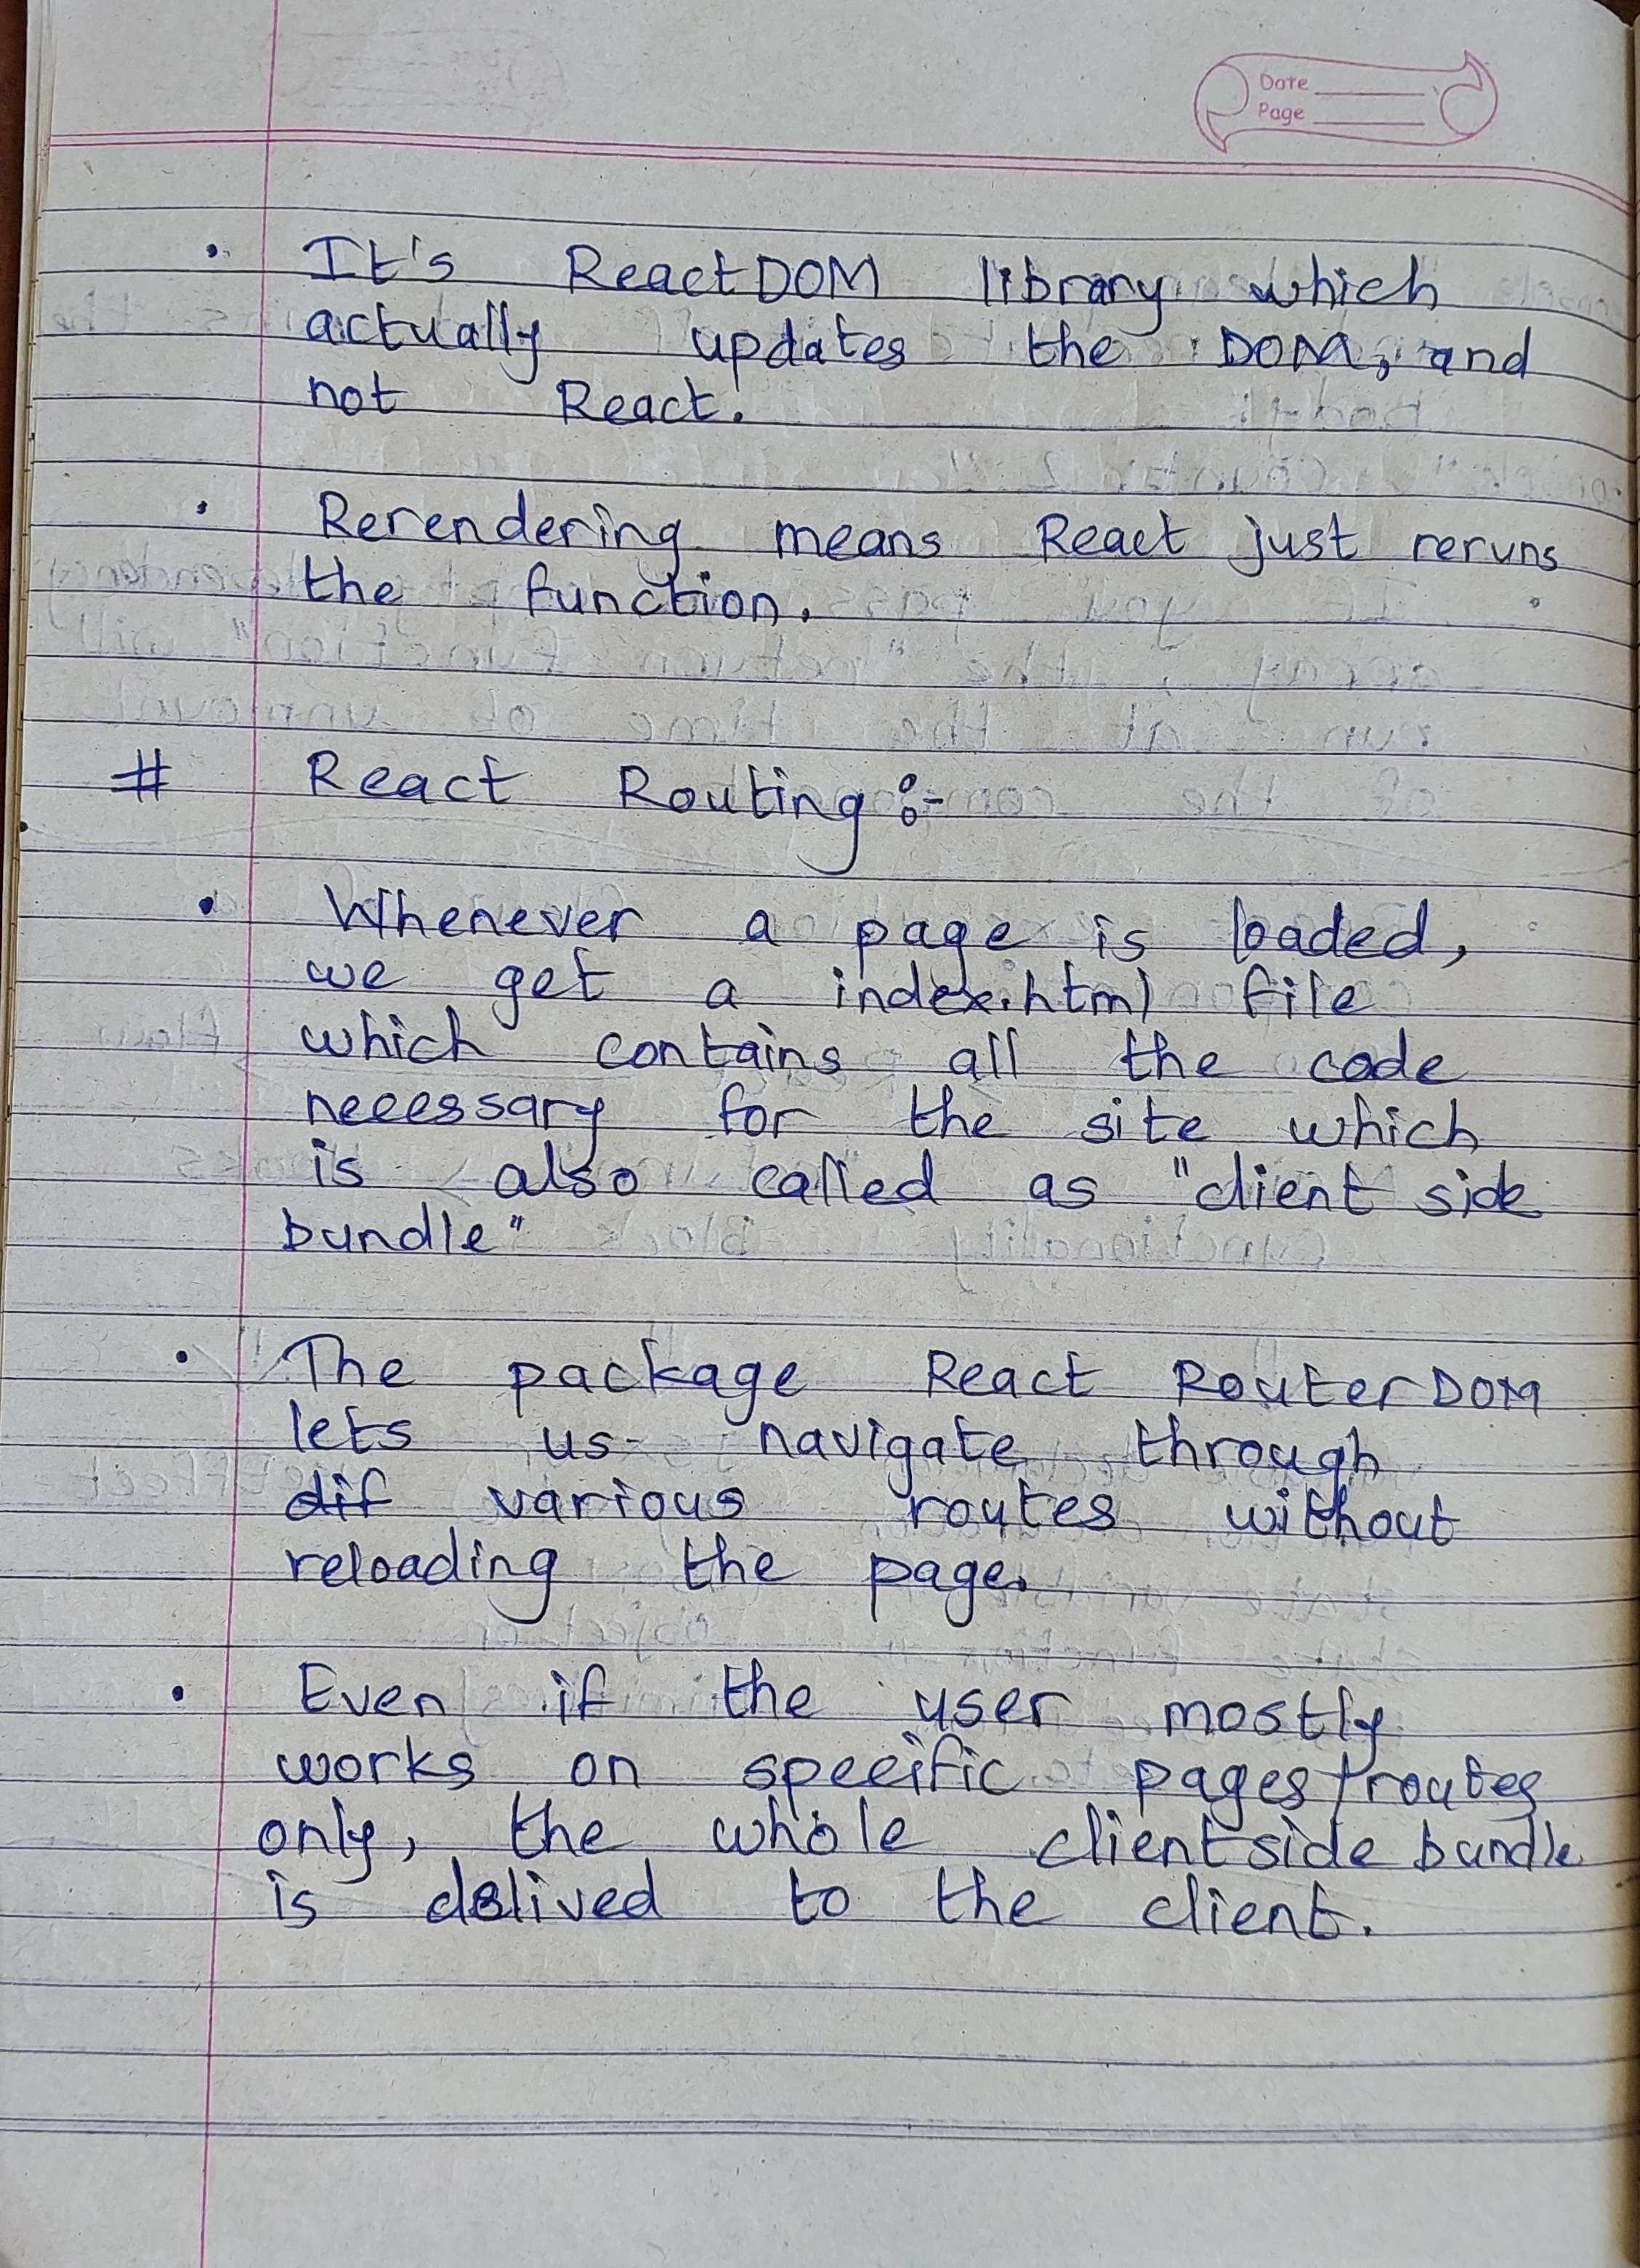 Date
Page
• It's ReactDOM library which
actually updates the DOM, and
not React.
• Rerendering means React just reruns
the function.
# React Routing :-
• Whenever a page is loaded,
we get a index.html file
which contains all the code
necessary for the site which
is also called as "client side
bundle"
• The package React RouterDOM
lets us navigate through
dif various routes without
reloading the page.
• Even if the user mostly
works on specific pages/routes
only, the whole client side bundle
is delived to the client.